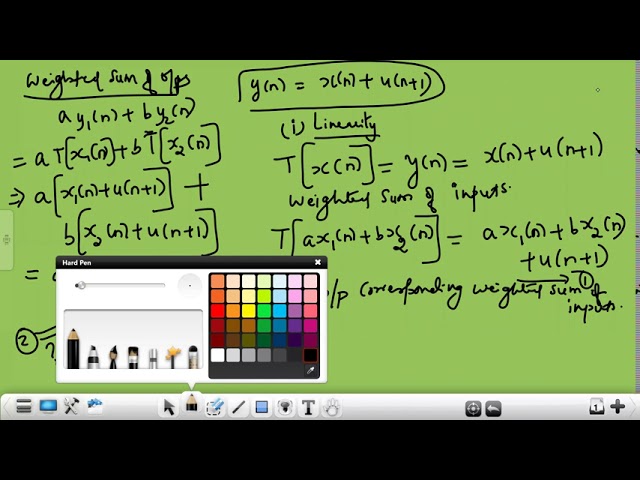 Weighted Sum of o/ps
a y₁(n) + b y₂(n)
= a T[x₁(n)] + b T[x₂(n)]
⇒ a[x₁(n)+u(n+1)] +
b[x₂(n)+u(n+1)]
= a
②
y(n) = x(n) + u(n+1)
(i) Linearity
T[x(n)] = y(n) = x(n)+u(n+1)
Weighted sum of inputs.
T[ax₁(n)+bx₂(n)] = ax₁(n)+bx₂(n)
+u(n+1)
①
o/p corresponding weighted sum of
inputs.
Hard Pen
T
1